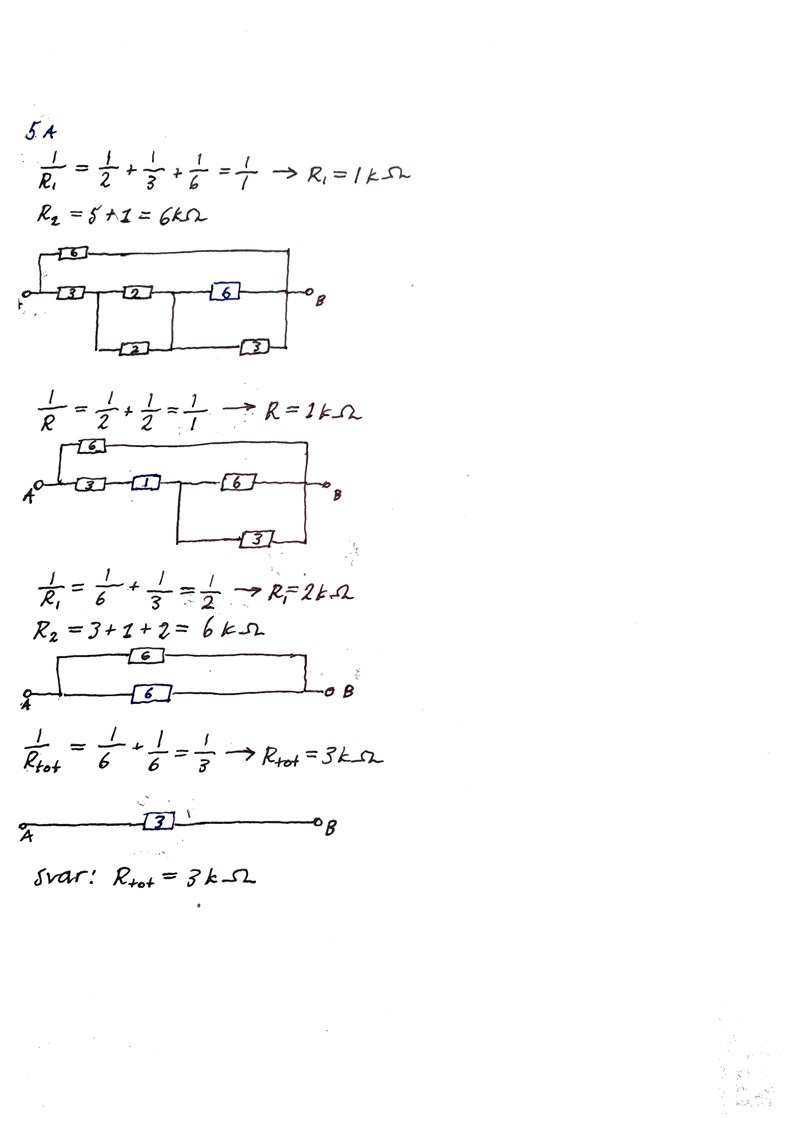 5A
1/R₁ = 1/2 + 1/3 + 1/6 = 1/1 → R₁ = 1kΩ
R₂ = 5+1 = 6kΩ
6
3 2 6 B
2 3
1/R = 1/2 + 1/2 = 1/1 → R = 1kΩ
6
A 3 1 6 B
3
1/R₁ = 1/6 + 1/3 = 1/2 → R₁ = 2kΩ
R₂ = 3+1+2 = 6kΩ
6
A 6 B
1/Rtot = 1/6 + 1/6 = 1/3 → Rtot = 3kΩ
A 3 B
svar: Rtot = 3kΩ